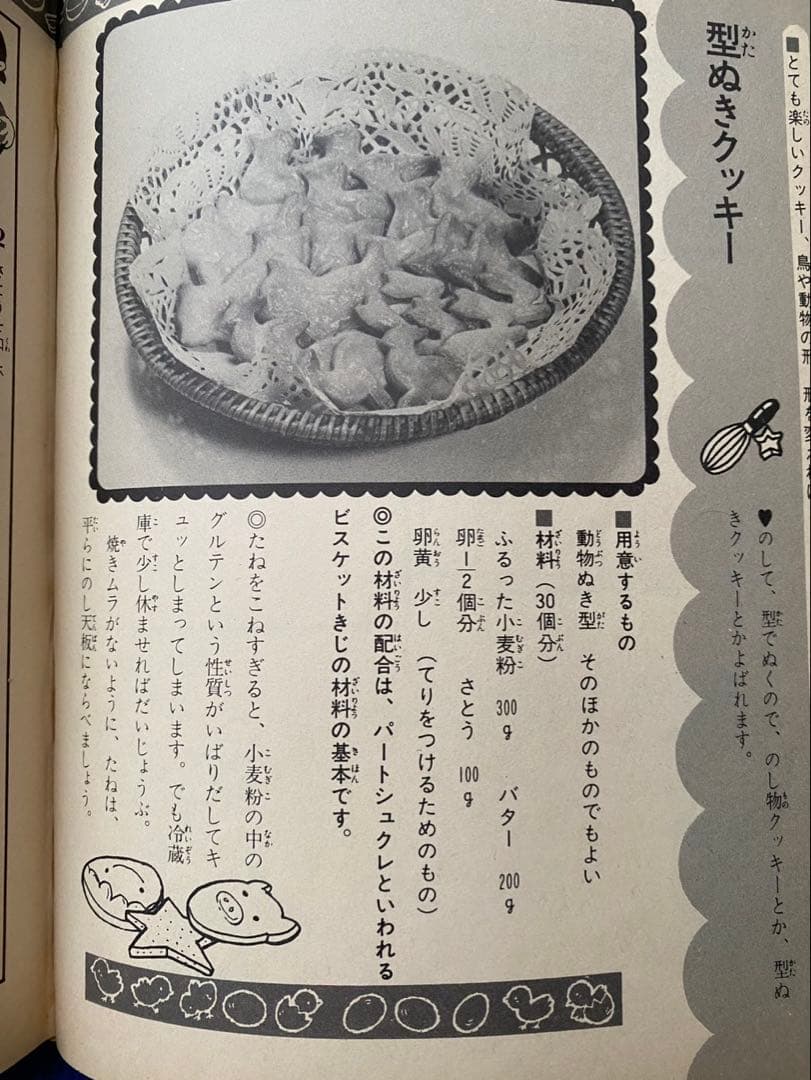 ■とても楽しいクッキー、鳥や動物の形、形を変えれば
型ぬきクッキー
♥のして、型でぬくので、のし物クッキーとか、型ぬ
きクッキーとかよばれます。
■用意するもの
動物ぬき型 そのほかのものでもよい
■材料(30個分)
ふるった小麦粉 300g バター 200g
卵1/2個分 さとう 100g
卵黄 少し (てりをつけるためのもの)
◎この材料の配合は、パートシュクレといわれる
ビスケットきじの材料の基本です。
◎たねをこねすぎると、小麦粉の中の
グルテンという性質がいばりだしてキ
ュッとしまってしまいます。でも冷蔵
庫で少し休ませればだいじょうぶ。
焼きムラがないように、たねは、
平らにのし天板にならべましょう。